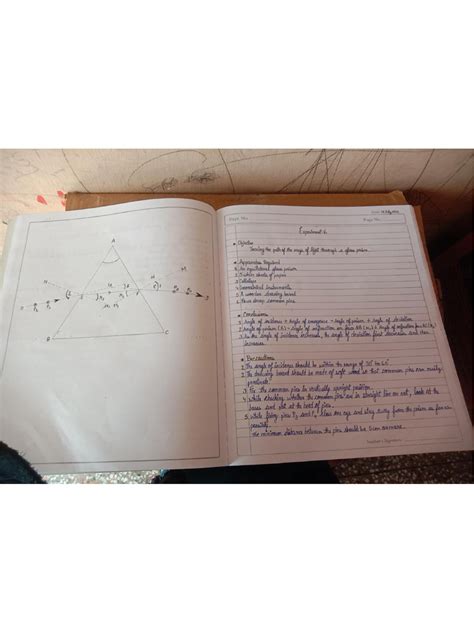 A
M
N
P1
P2
E
F
B
C
Page No.
Page No.
Experiment 6
Objective
Tracing the path of the rays of light through a glass prism.
Apparatus Required
An equilateral glass prism
sheets of paper
Cellotape
Geometrical Instruments
A wooden drawing board
common pins
Conclusions
1 Angle of incidence + Angle of emergence = Angle of prism + Angle of deviation
2 Angle of prism (A) = Angle of refraction on face AB + Angle of refraction face AC
3 As the angle of incidence increases, the angle of deviation first decreases and then
increases.
Precautions
1 The angle of incidence should be within the range of 30° to 60°.
2 The drawing board should be made of soft wood so that common pins can easily
penetrate.
3 Fix the common pins in vertically upright position.
4 While checking whether the common pins are in straight line or not, look at the
bases and not at the head of pins.
5 While fixing pins P3 and P4 close one eye and stay away from the prism as far as
possible.
The minimum distance between the pins should be 5 cm
Teacher's Signature